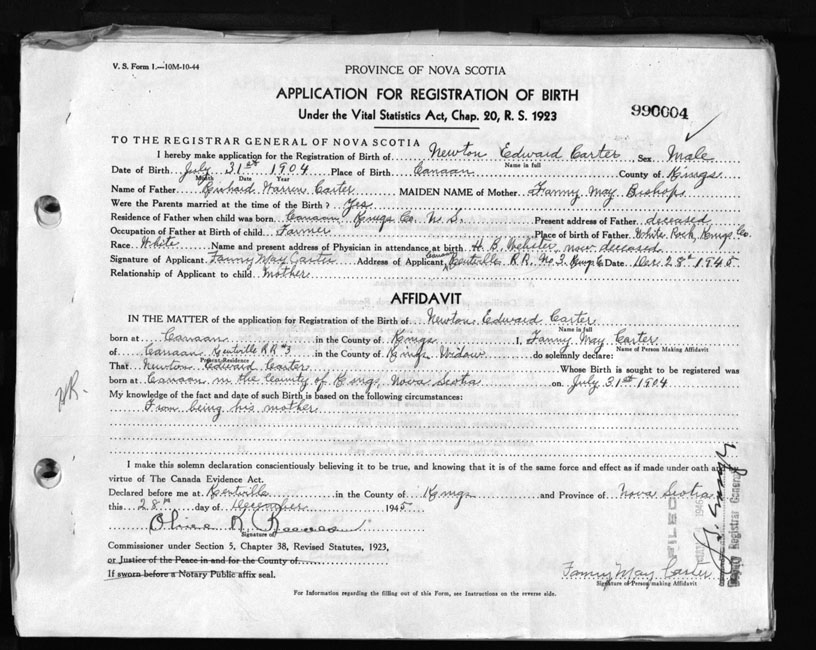 V. S. Form 1.—10M-10-44
PROVINCE OF NOVA SCOTIA
APPLICATION FOR REGISTRATION OF BIRTH
Under the Vital Statistics Act, Chap. 20, R. S. 1923
990004
TO THE REGISTRAR GENERAL OF NOVA SCOTIA
I hereby make application for the Registration of Birth of Newton Edward Carter Sex Male
Name in full
Date of Birth July 31st 1904 Place of Birth Canaan County of Kings
Month Date Year
Name of Father Richard Warren Carter MAIDEN NAME of Mother Fanny May Bishop
Were the Parents married at the time of the Birth? Yes
Residence of Father when child was born Canaan Kings Co. N. S. Present address of Father deceased
Occupation of Father at Birth of child Farmer Place of birth of Father White Rock, Kings Co.
Race White Name and present address of Physician in attendance at birth H. B. Webster, now deceased
Signature of Applicant Fanny May Carter Address of Applicant Canaan Kentville R.R. No 3. Kings Co Date Dec 28th 1945
Relationship of Applicant to child Mother
AFFIDAVIT
IN THE MATTER of the application for Registration of the Birth of Newton Edward Carter
Name in full
born at Canaan in the County of Kings I, Fanny May Carter
Name of Person Making Affidavit
of Canaan Kentville RR #3 in the County of Kings Widow do solemnly declare:
Present Residence
That Newton Edward Carter Whose Birth is sought to be registered was
born at Canaan in the County of Kings, Nova Scotia on July 31st 1904
My knowledge of the fact and date of such Birth is based on the following circumstances:
From being his mother
I make this solemn declaration conscientiously believing it to be true, and knowing that it is of the same force and effect as if made under oath and
virtue of The Canada Evidence Act.
Declared before me at Kentville in the County of Kings and Province of Nova Scotia
this 28th day of December 1945
Signature of
Commissioner under Section 5, Chapter 38, Revised Statutes, 1923,
or Justice of the Peace in and for the County of
If sworn before a Notary Public affix seal.
Fanny May Carter
Signature of Person making Affidavit
For Information regarding the filling out of this Form, see Instructions on the reverse side.
FILED
Deputy Registrar General